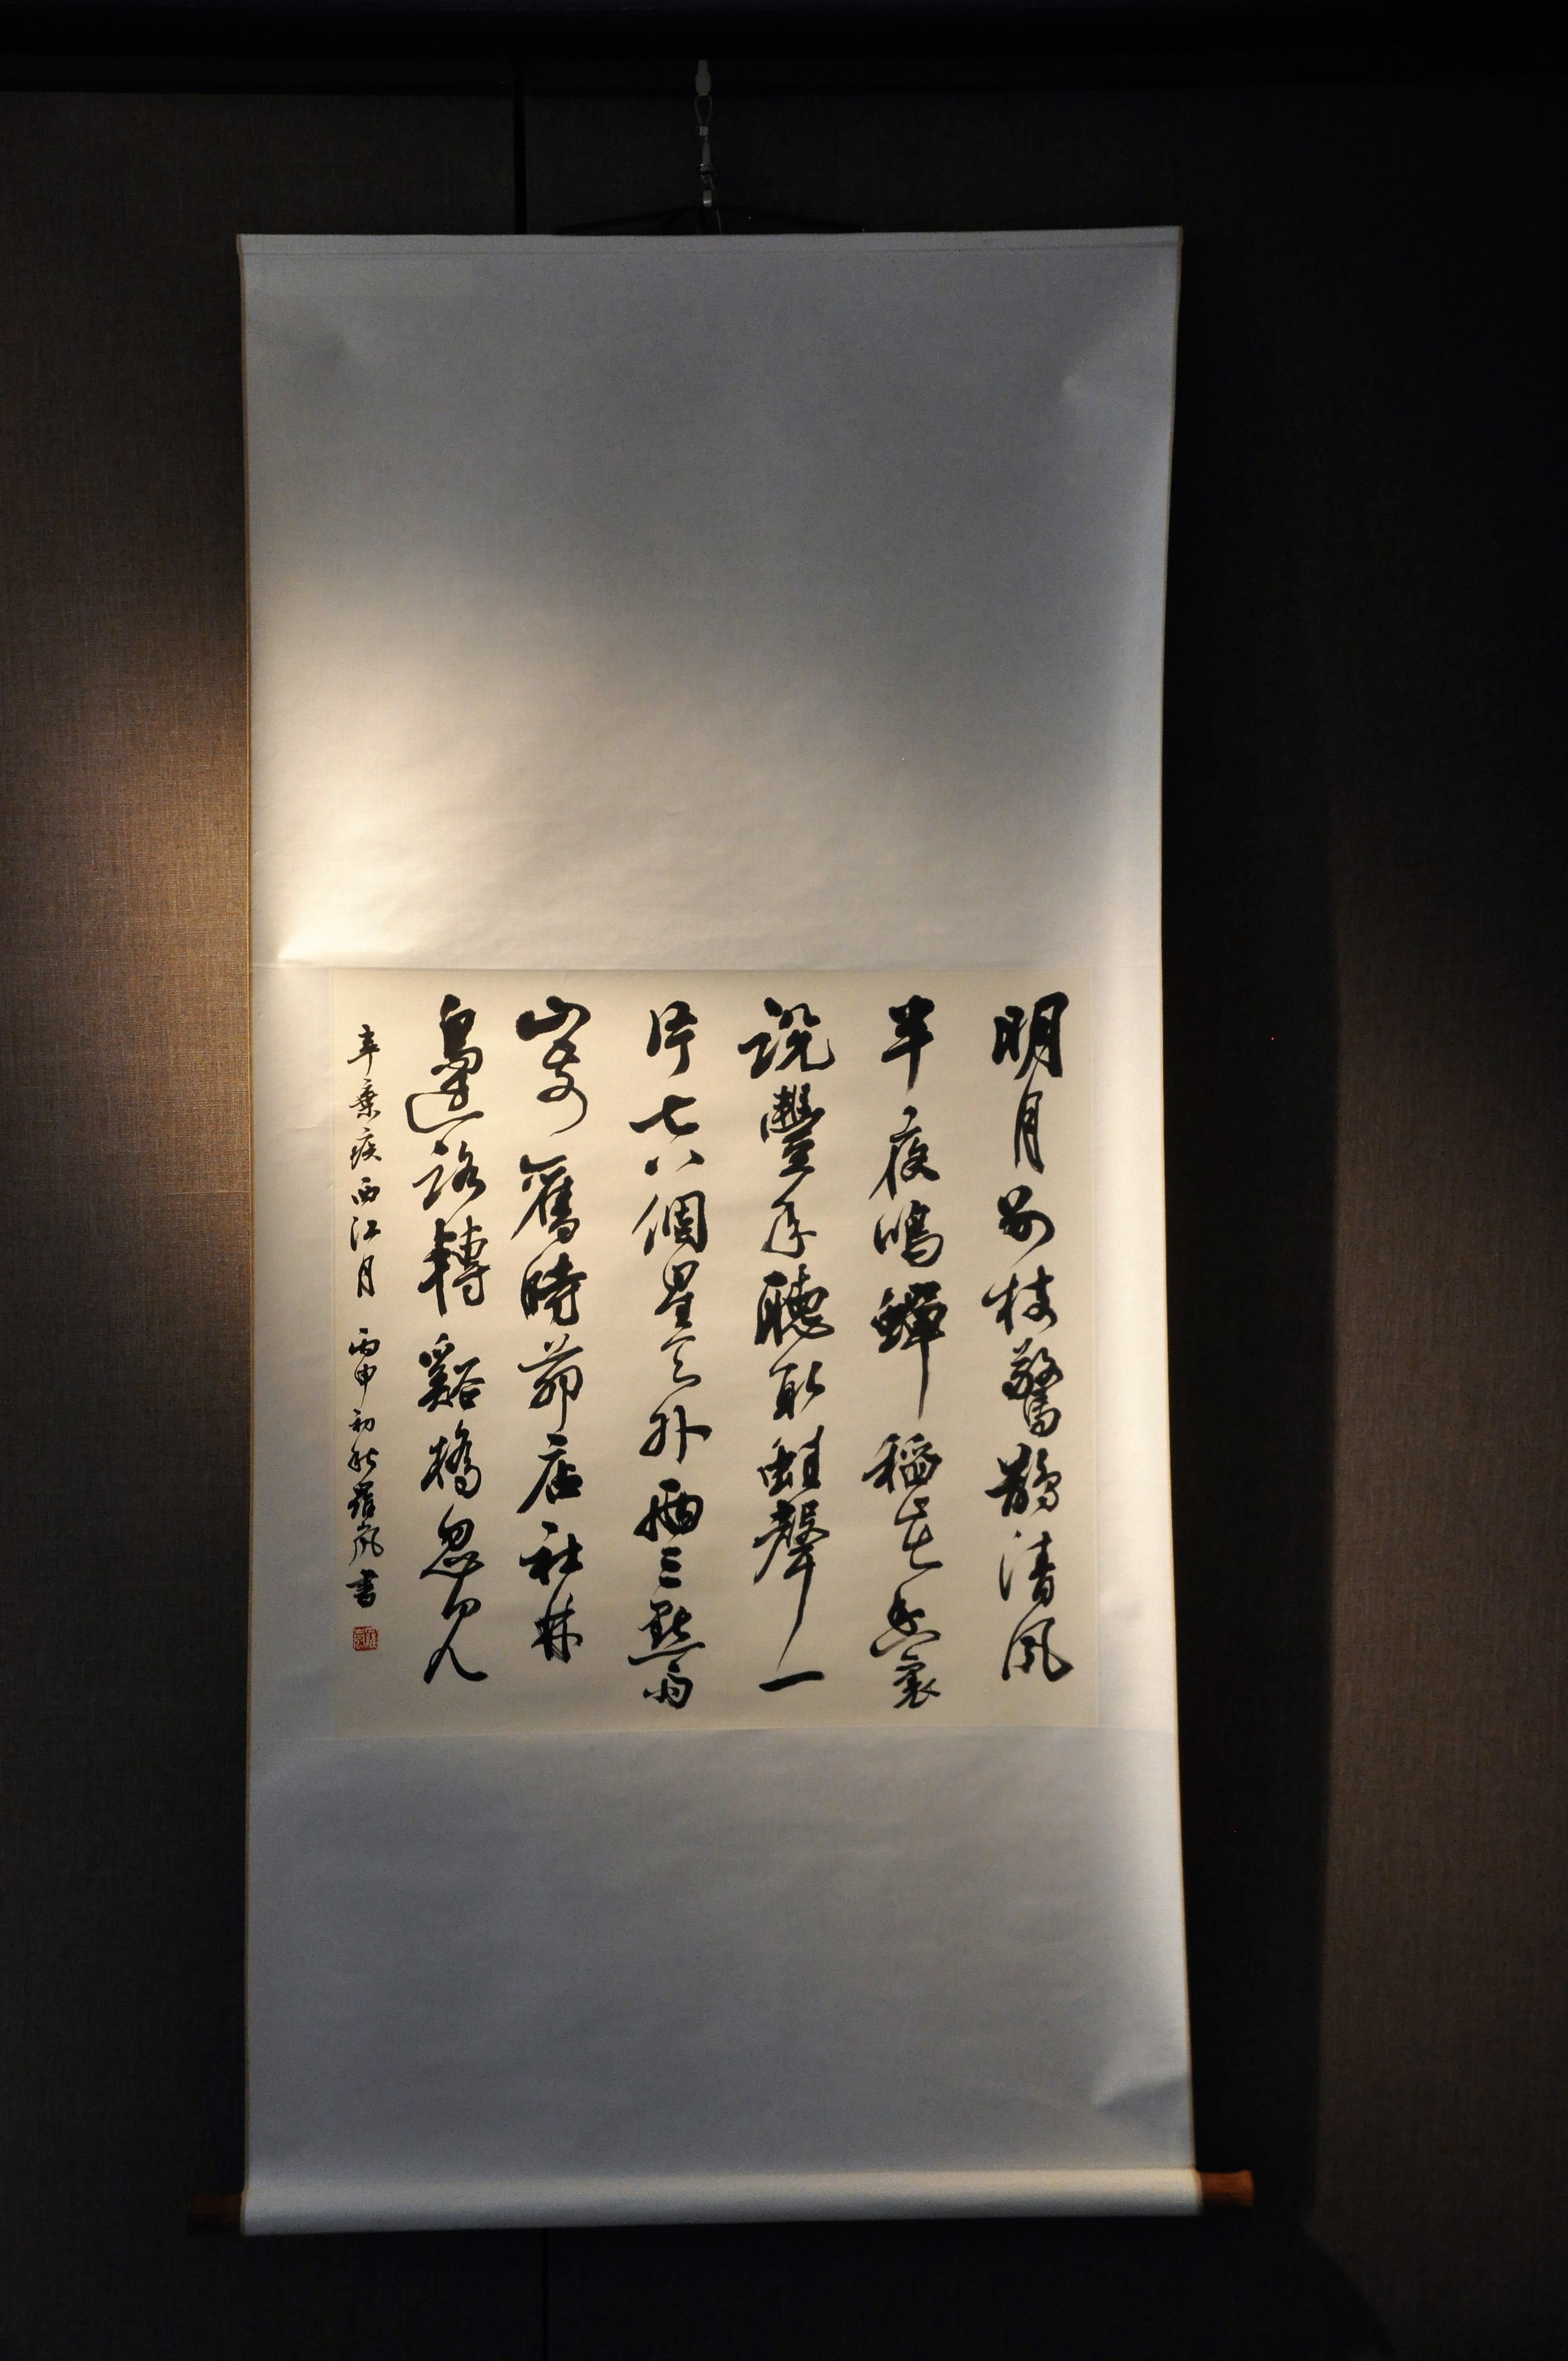 明月別枝驚鵲清風
半夜鳴蟬稻花香裏
說豐年聽取蛙聲一
片七八個星天外兩三點雨
山前舊時茆店社林
邊路轉谿橋忽見
辛棄疾西江月 丙申初秋羅嵐書